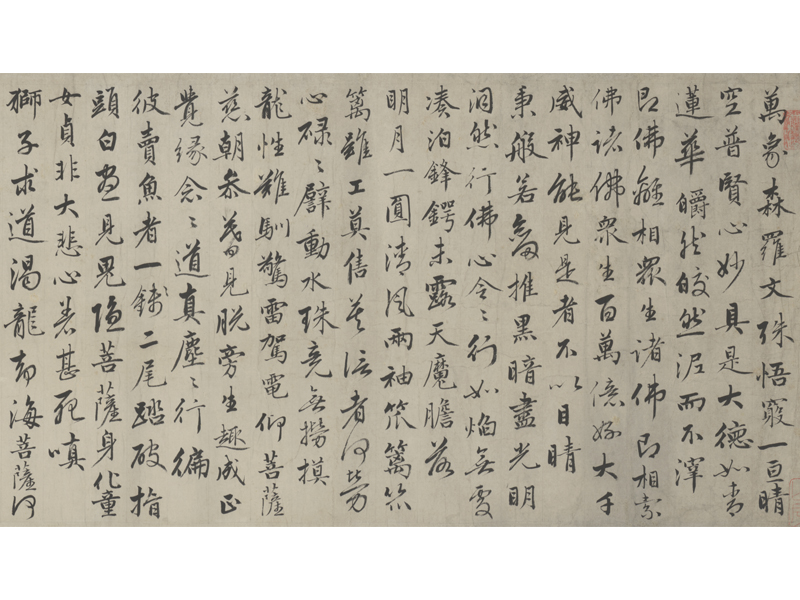 萬象森羅文殊悟竅一亘晴
空普賢心妙具是大德如青
蓮華皭然皎然泥而不滓
即佛離相眾生諸佛即相素
佛諸佛眾生百萬億好大手
威神能見是者不以目睛
秉般若劍推黑暗盡光明
洞然行佛心令令行如焰無受
湊泊鋒鍔未露天魔膽落
明月一圓清風兩袖笊篱笊
篱雖工莫售笑信者何勞
心碌碌劈動水珠竟無撈摸
龍性難馴驚雷駕電仰菩薩
慈朝參暮見脫旁生趣成正
覺緣念念道真塵塵行徧
彼賣魚者一錢二尾踏破指
頭白晝見鬼隱菩薩身化童
女貞非大悲心若甚死嗔
獅子求道渴龍奔海菩薩何